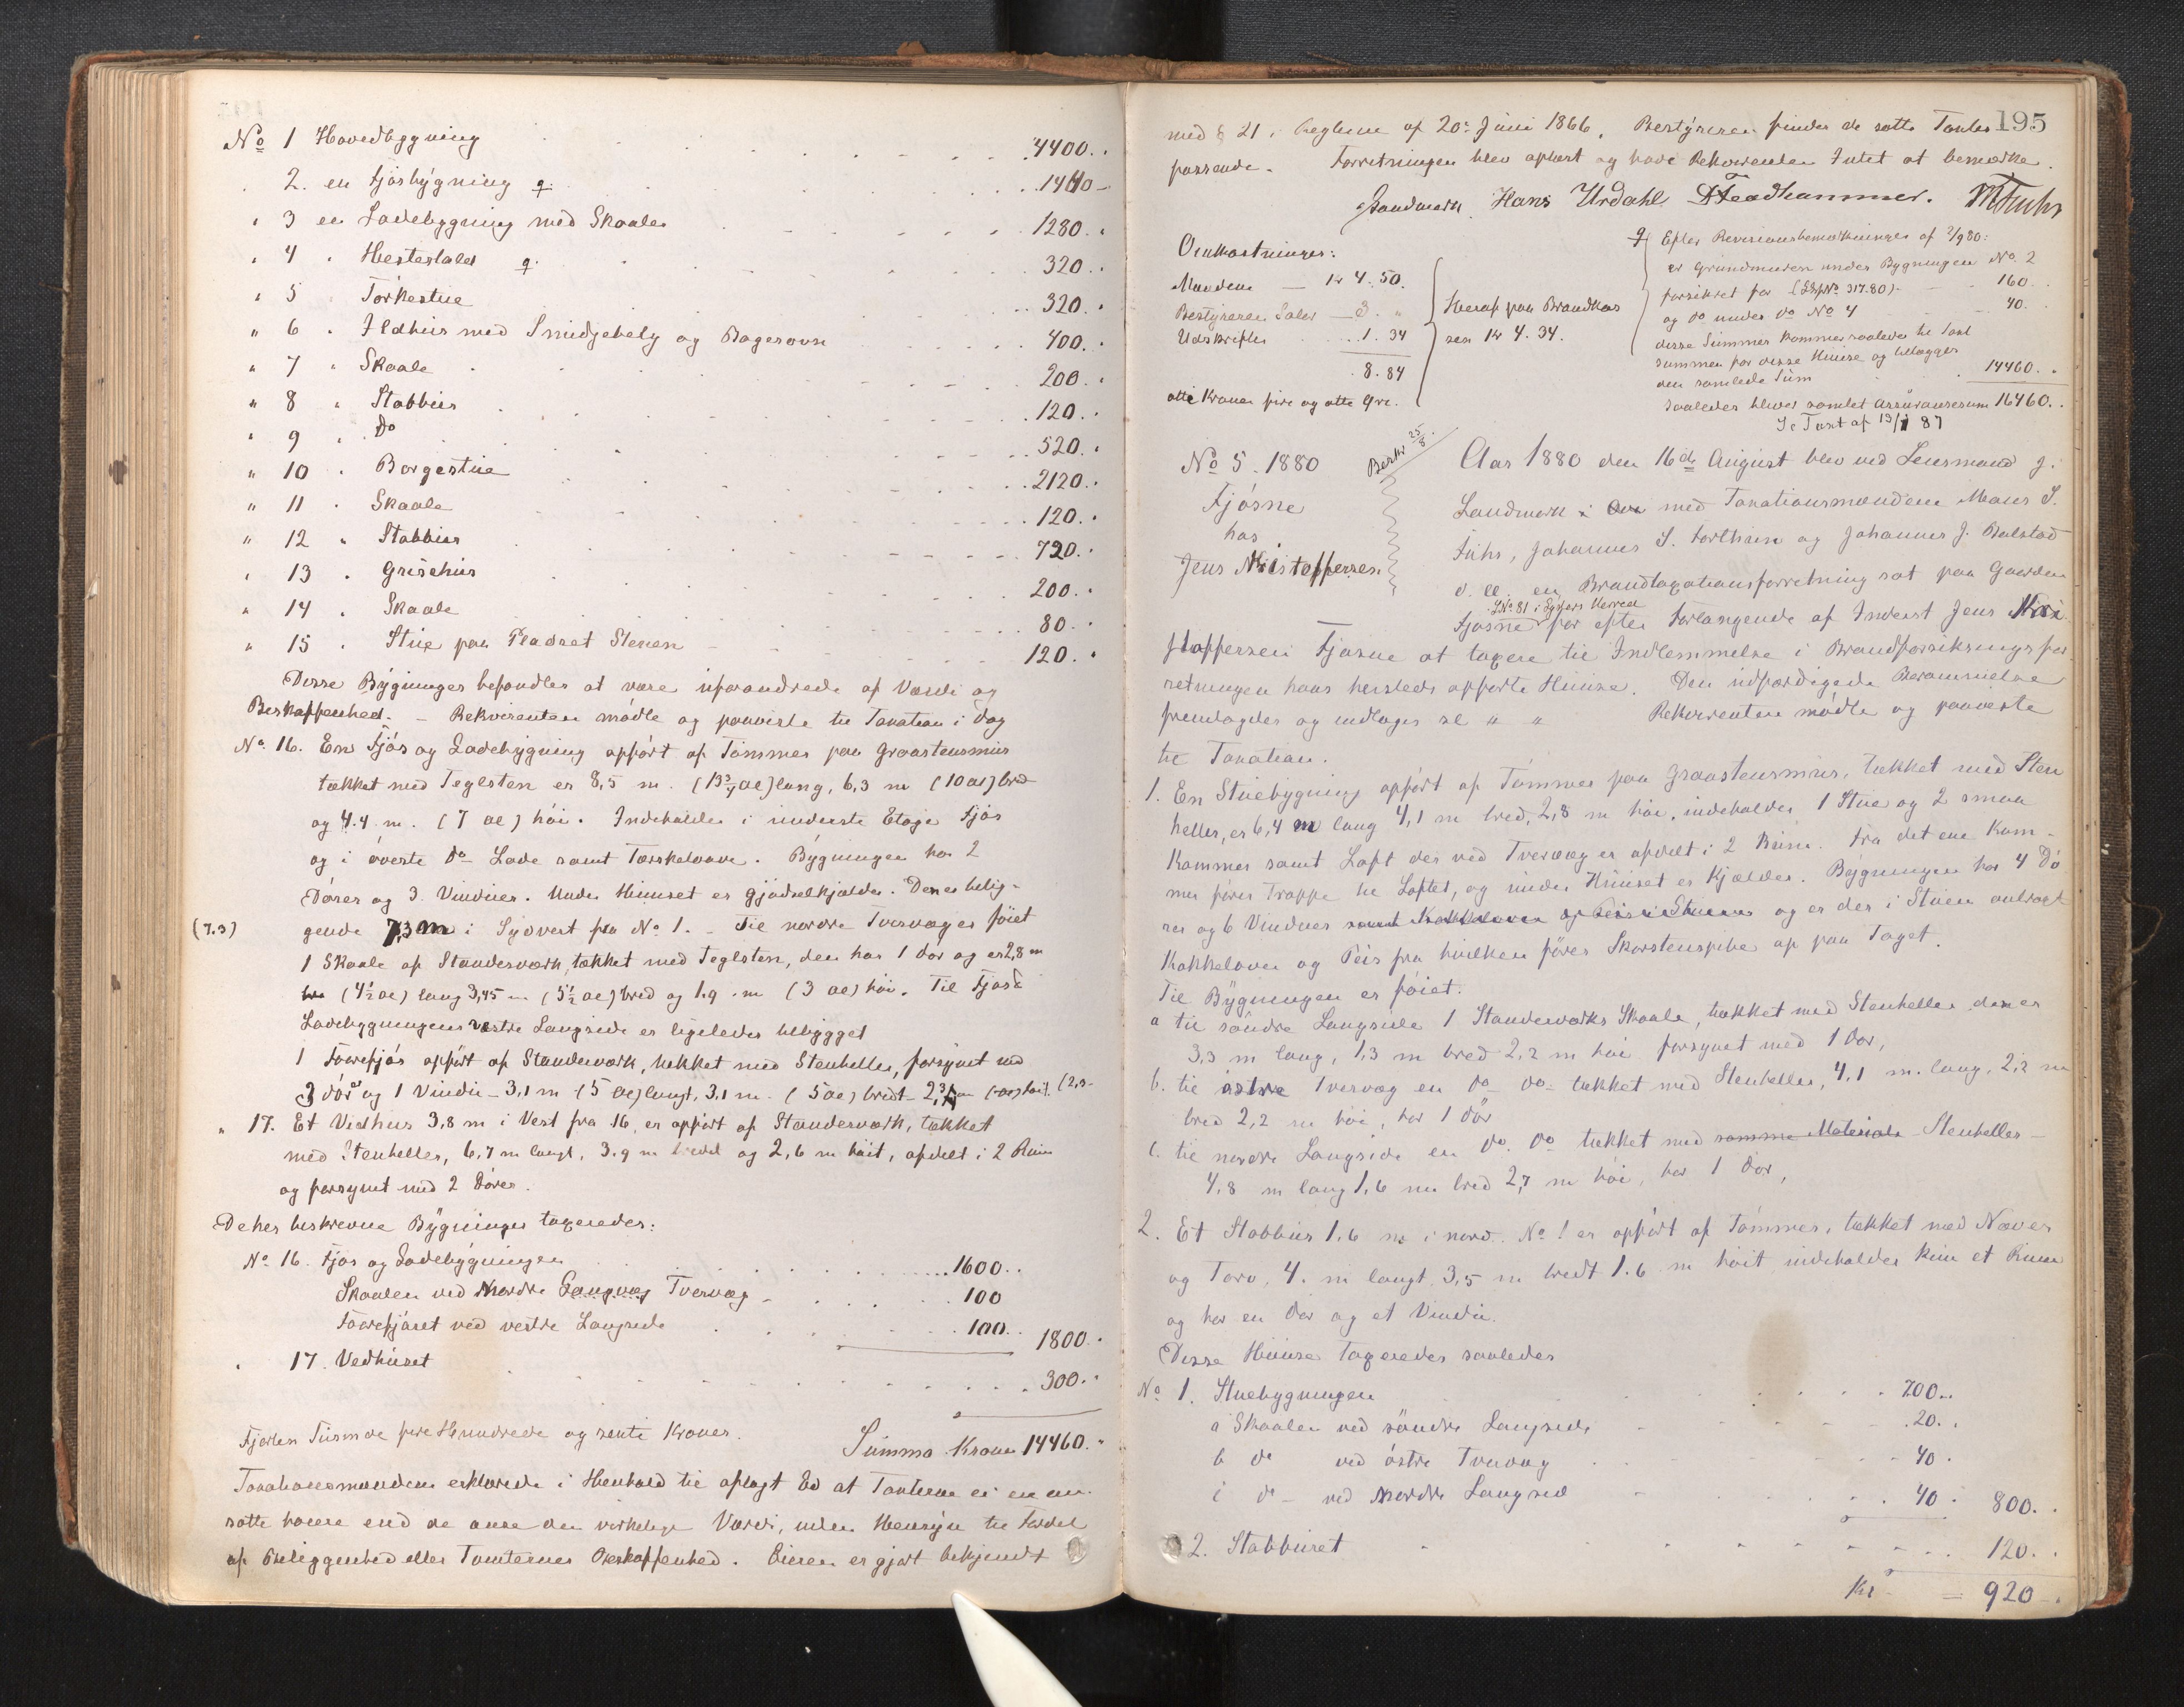 No 1 Hovedbygning 4400..
2. en Fjøsbygning q. 1440-
" 3 en Ladebygning med Skaaler 1280..
" 4 " Hestestald q. 320..
" 5 " Torkestue 320..
" 6 " Ildhus med Smidjebelg og Bagerovn 400..
" 7 " Skaale 200..
" 8 " Stabbur 120..
" 9 " Do 520..
" 10 " Borgestue 2120..
" 11 " Skaale 120..
" 12 " Stabbur 720..
" 13 " Grisehus 200..
" 14 " Skaale 80..
" 15 " Stue paa Pladset Stenen 120..
Disse Bygninger befandtes at være uforandrede af Værdi og
Beskaffenhed. - Rekvirenten mødte og paaviste til Taxation i Dag
No 16. En Fjøs og Ladebygning opført af Tømmer paa Graastensmur
tækket med Teglsten er 8,5 m. (13 3/4 al) lang, 6,3 m (10 al) bred
og 4.4 m. (7 al) høi. Indeholder i underste Etage Fjøs
og i øverste do Lade samt Tærskelaave. Bygningen har 2
Dører og 3 Vinduer. Under Huuset er Gjødselkjælder. Den er belig-
(7.3) gende 7,3 m i Sydvest fra No 1. - Til nordre Tvervæg er føiet
1 Skaale af Standerværk, tækket med Teglsten, den har 1 Dør og er 2,8 m
(4 1/2 al) lang 3,45 m (5 1/2 al) bred og 1.9 m (3 al) høi. Til Fjøs &
Ladebygningens vestre Langside er ligeledes tilbygget
1 Faarefjøs opført af Standerværk, tækket med Stenheller, forsynet med
2 Dør og 1 Vindu - 3,1 m (5 al) langt, 3,1 m. (5 al) bredt - 2,3 m høit. (2,3-
" 17. Et Vedhus 3,8 m i Vest fra 16, er opført af Standerværk, tækket
med Stenheller, 6,7 m langt, 3.9 m bredt og 2,6 m høit, afdelt i 2 Rum
og forsynet med 2 Dører.
De her beskrevne Bygninger taxeredes:
No 16. Fjøs og Ladebygningen 1600..
Skaalen ved Nordre Langvæg Tvervæg 100
Faarefjøset ved vestre Langside 100.. 1800..
" 17. Vedhuset 300..
Fjorten Tusinde fire Hundrede og sexti Kroner. Summa Kroner 14460."
Taxationsmændene erklærede i Henhold til aflagt Ed at Taxterne ei ere an-
satte høiere end de ansee den virkelige Værdi, uden Hensyn til Fordel
af Beliggenhed eller Tomternes Beskaffenhed. Eieren er gjort bekjendt
195
med § 21 i Reglerne af 20de Juni 1866. Bestyreren finder de satte Taxter
passende. Forretningen blev oplæst og havde Rekvirenten Intet at bemærke.
Landmark Hans Urdahl MFuhr
Omkostninger:
Mændene - Kr 4.50.
Bestyreren Salær - 3. "
Udskriften 1.34
8.84
otte Kroner fire og otte Øre.
Heraf paa Brandkas
sen Kr 4.34.
q Efter Revisionsbemærkninger af 2/9 80:
er Grundmuren under Bygningen No 2
forsikret for (LNo 317.80) - 160..
og do under do No 4 40..
disse Summer kommer saaledes til Taxt
summen for disse Huuse og tillægges
den samlede Sum 14460..
saaledes bliver samlet Assurancesum 16460..
Se Taxt af 13/1 87
No 5. 1880
Beskr 25/8.
Fjøsne
hos
Jens Kristoffersen
Aar 1880 den 16de August blev ved Lensmand J.
Landmark med Taxationsmændene Mons S.
Fuhr, Johannes S. Forthun og Johannes J. Bolstad
o. ll. en Brandtaxationsforretning sat paa Gaarden
LNo 81 i Lysters Herred
Fjøsne for efter Forlangende af Inderst Jens Kri
stoffersen Fjøsne at taxere til Indlemmelse i Brandforsikringsfor
retningen hans hersteds opførte Huuse. Den udfærdigede Berammelse
fremlagdes og indtages sl " " Rekvirenten mødte og paaviste
til Taxation.
1. En Stuebygning opført af Tømmer paa Graastensmur, tækket med Sten
heller, er 6,4 m lang 4,1 m bred, 2,8 m høi, indeholder 1 Stue og 2 smaa
Kammer samt Loft der ved Tvervæg er afdelt i 2 Rum. Fra det ene Kam-
mer fører Trappe til Loftet, og under Huuset er Kjælder. Bygningen har 4 Dø
rer og 6 Vinduer samt Kakkelovn og Peis i Stuen og er der i Stuen anbragt
Kakkelovn og Peis fra hvilken fører Skorstenspibe op paa Taget.
Til Bygningen er føiet.
a til søndre Langside 1 Standerværks Skaale, tækket med Stenheller den er
3,3 m lang, 1,3 m bred 2,2 m høi forsynet med 1 Dør,
b. til østre Tvervæg en do do tækket med Stenheller, 4,1 m. lang, 2,2 m
bred 2,2 m høi, har 1 Dør
c. til nordre Langside en do. do tækket med samme Materiale Stenheller -
4,8 m lang 1,6 m bred 2,7 m høi, har 1 Dør,
2. Et Stabbur 1.6 m i nord No 1 er opført af Tømmer, tækket med Næver
og Torv, 4. m langt 3,5 m bredt 1.6 m høit indeholder kun et Rum
og har en Dør og et Vindu.
Disse Huuse Taxeredes saaledes
No 1. Stuebygningen 700..
a Skaalen ved søndre Langside 20..
b do ved østre Tvervæg 40.
c do - ved Nordre Langside 40. 800..
2. Stabburet 120..
Kr = 920-.